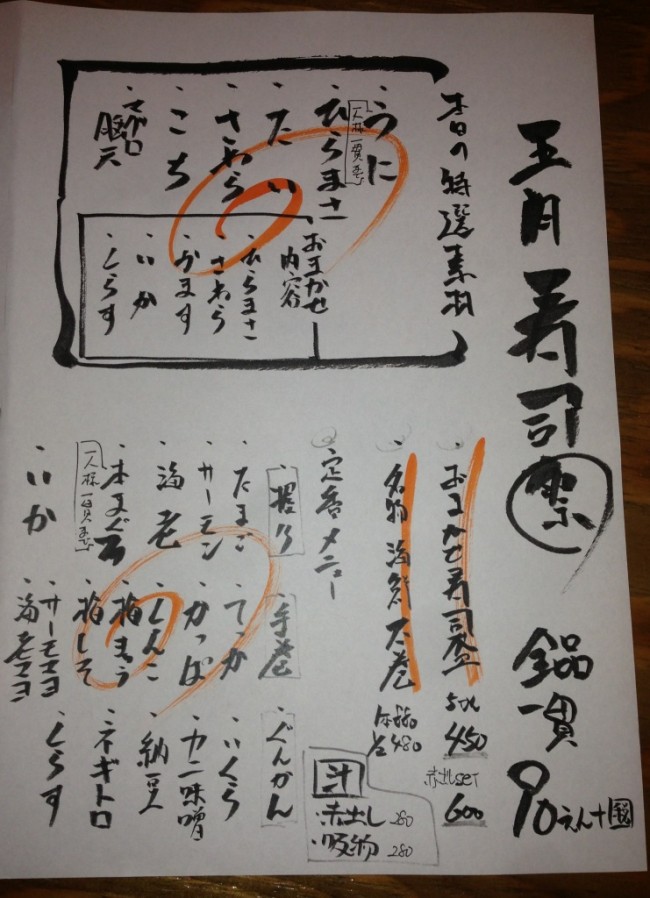 五月寿司祭 全品一貫90えん+税
本日の特選素材
・うに
一人様一貫まで
・ひらまさ
・たい
・さわら
・こち
・マグロ脳天
おまかせ
内容
・ひらまさ
・さわら
・かます
・いか
・しらす
・おまかせ寿司盛 450
赤出しset 600
・名物 海鮮大巻 480
定番メニュー
・握り
・たまご
・サーモン
・海老
・本まぐろ
一人様一貫まで
・いか
・手巻
・てっか
・かっぱ
・しんこ
・梅きゅう
・梅しそ
・サーモンマヨ
・海老マヨ
・ぐんかん
・いくら
・カニ味噌
・納豆
・ネギトロ
・しらす
汁
・赤出し 280
・吸物 280